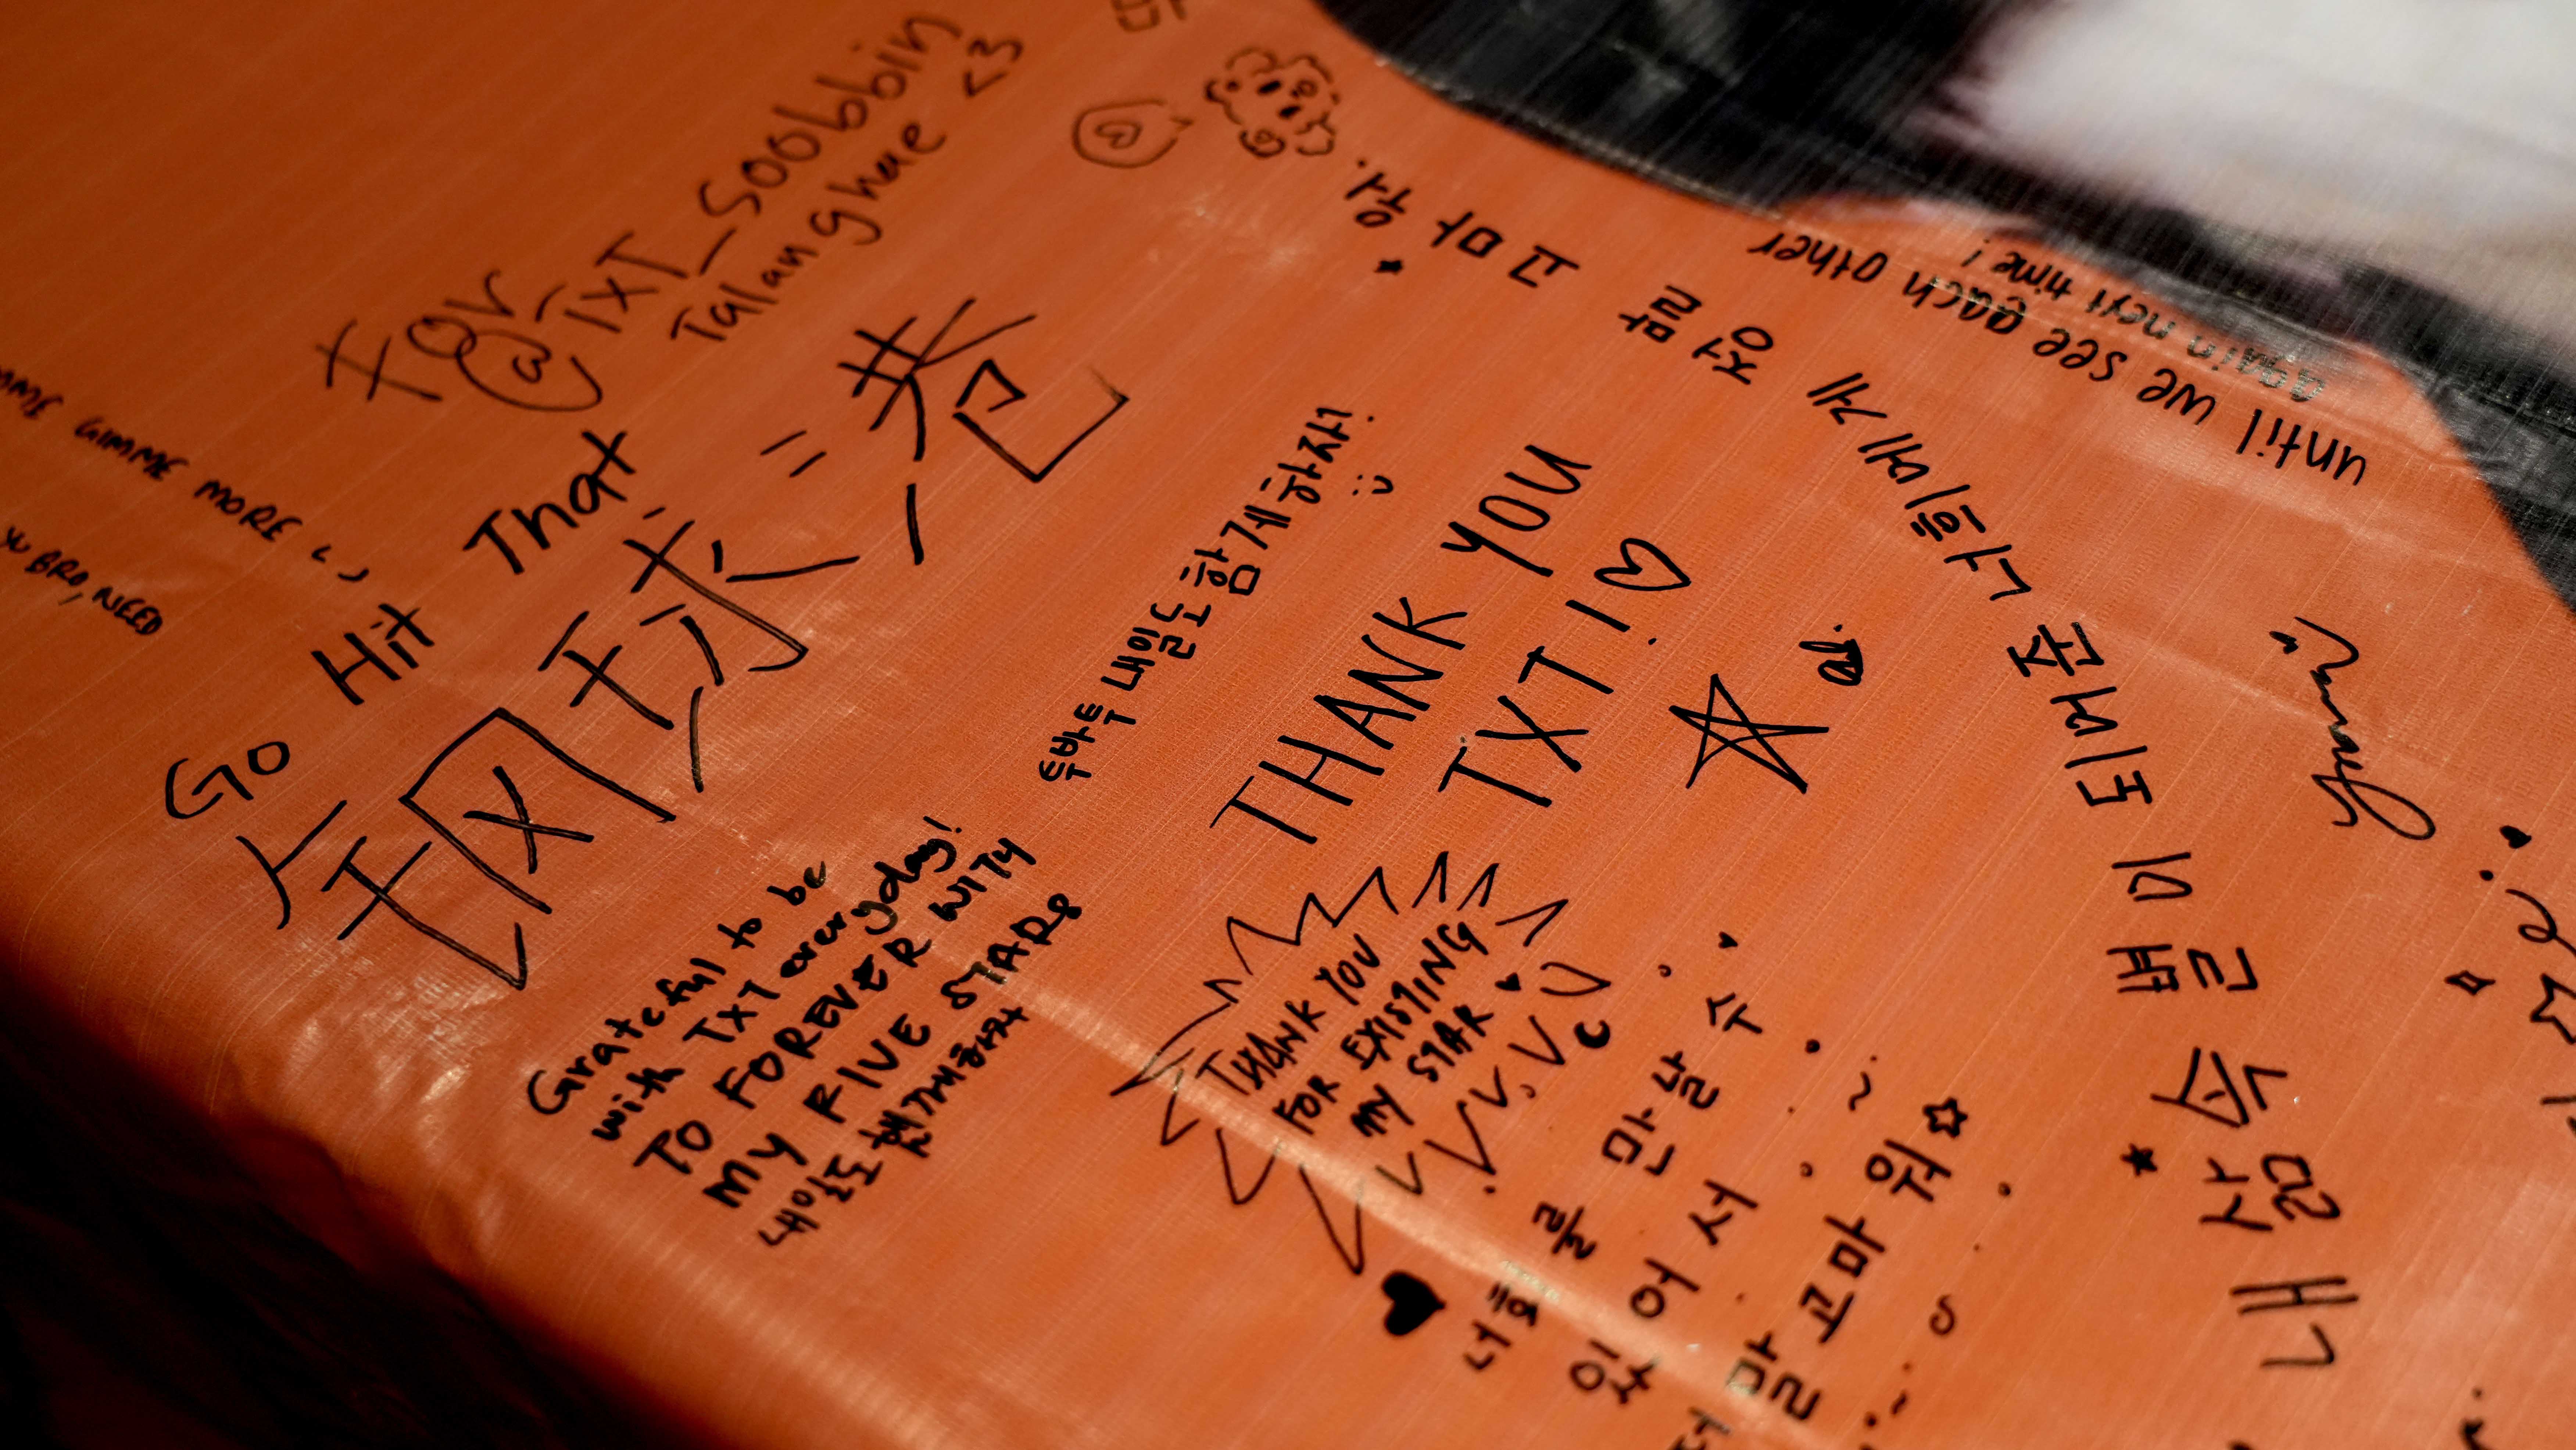 For
@TXT_Soobbin
Talanghae <3
GIMME MORE
BRO, NEED
Go Hit That
钢球港
뚜바뚜 내일도 함께하자!
:)
THANK YOU
TXT! ♡
Grateful to be
with TXT everyday!
TO FOREVER WITH
MY FIVE STARS
내일도 함께하자
THANK YOU
FOR EXISTING
MY STAR ♥
너희를 만날 수
있어서
정말 고마워 ☆
내 삶 속 별이 되어준 너희에게 정말 고마워.
until we see each other
again next time!